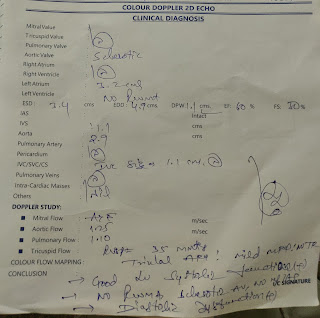 COLOUR DOPPLER 2D ECHO
CLINICAL DIAGNOSIS
Mitral Value
Tricuspid Valve
Pulmonary Valve
Aortic Valve Sclerotic
Right Atrium
Right Ventricle
Left Atrium 3.2 cms
Left Ventricle No RWMA
ESD : 3.4 cms EDD : 4.9 cms DPW : 1.1 cms EF : 60 % FS : 30 %
IAS Intact
IVS 1.1
Aorta 2.9 cms
Pulmonary Artery
Pericardium
IVC/SVC/CS IVC Size 1.1 cms
Pulmonary Veins
Intra-Cardiac Masses
Others Nil
DOPPLER STUDY:
Mitral Flow : m/sec
Aortic Flow : 1.25 m/sec
Pulmonary Flow : 1.10
Tricuspid Flow : 35 mmHg
COLOUR FLOW MAPPING : Trivial mild
CONCLUSION → Good LV Systolic function
→ No RWMA Sclerotic AV, No
SIGNATURE
→ Diastolic dysfunction